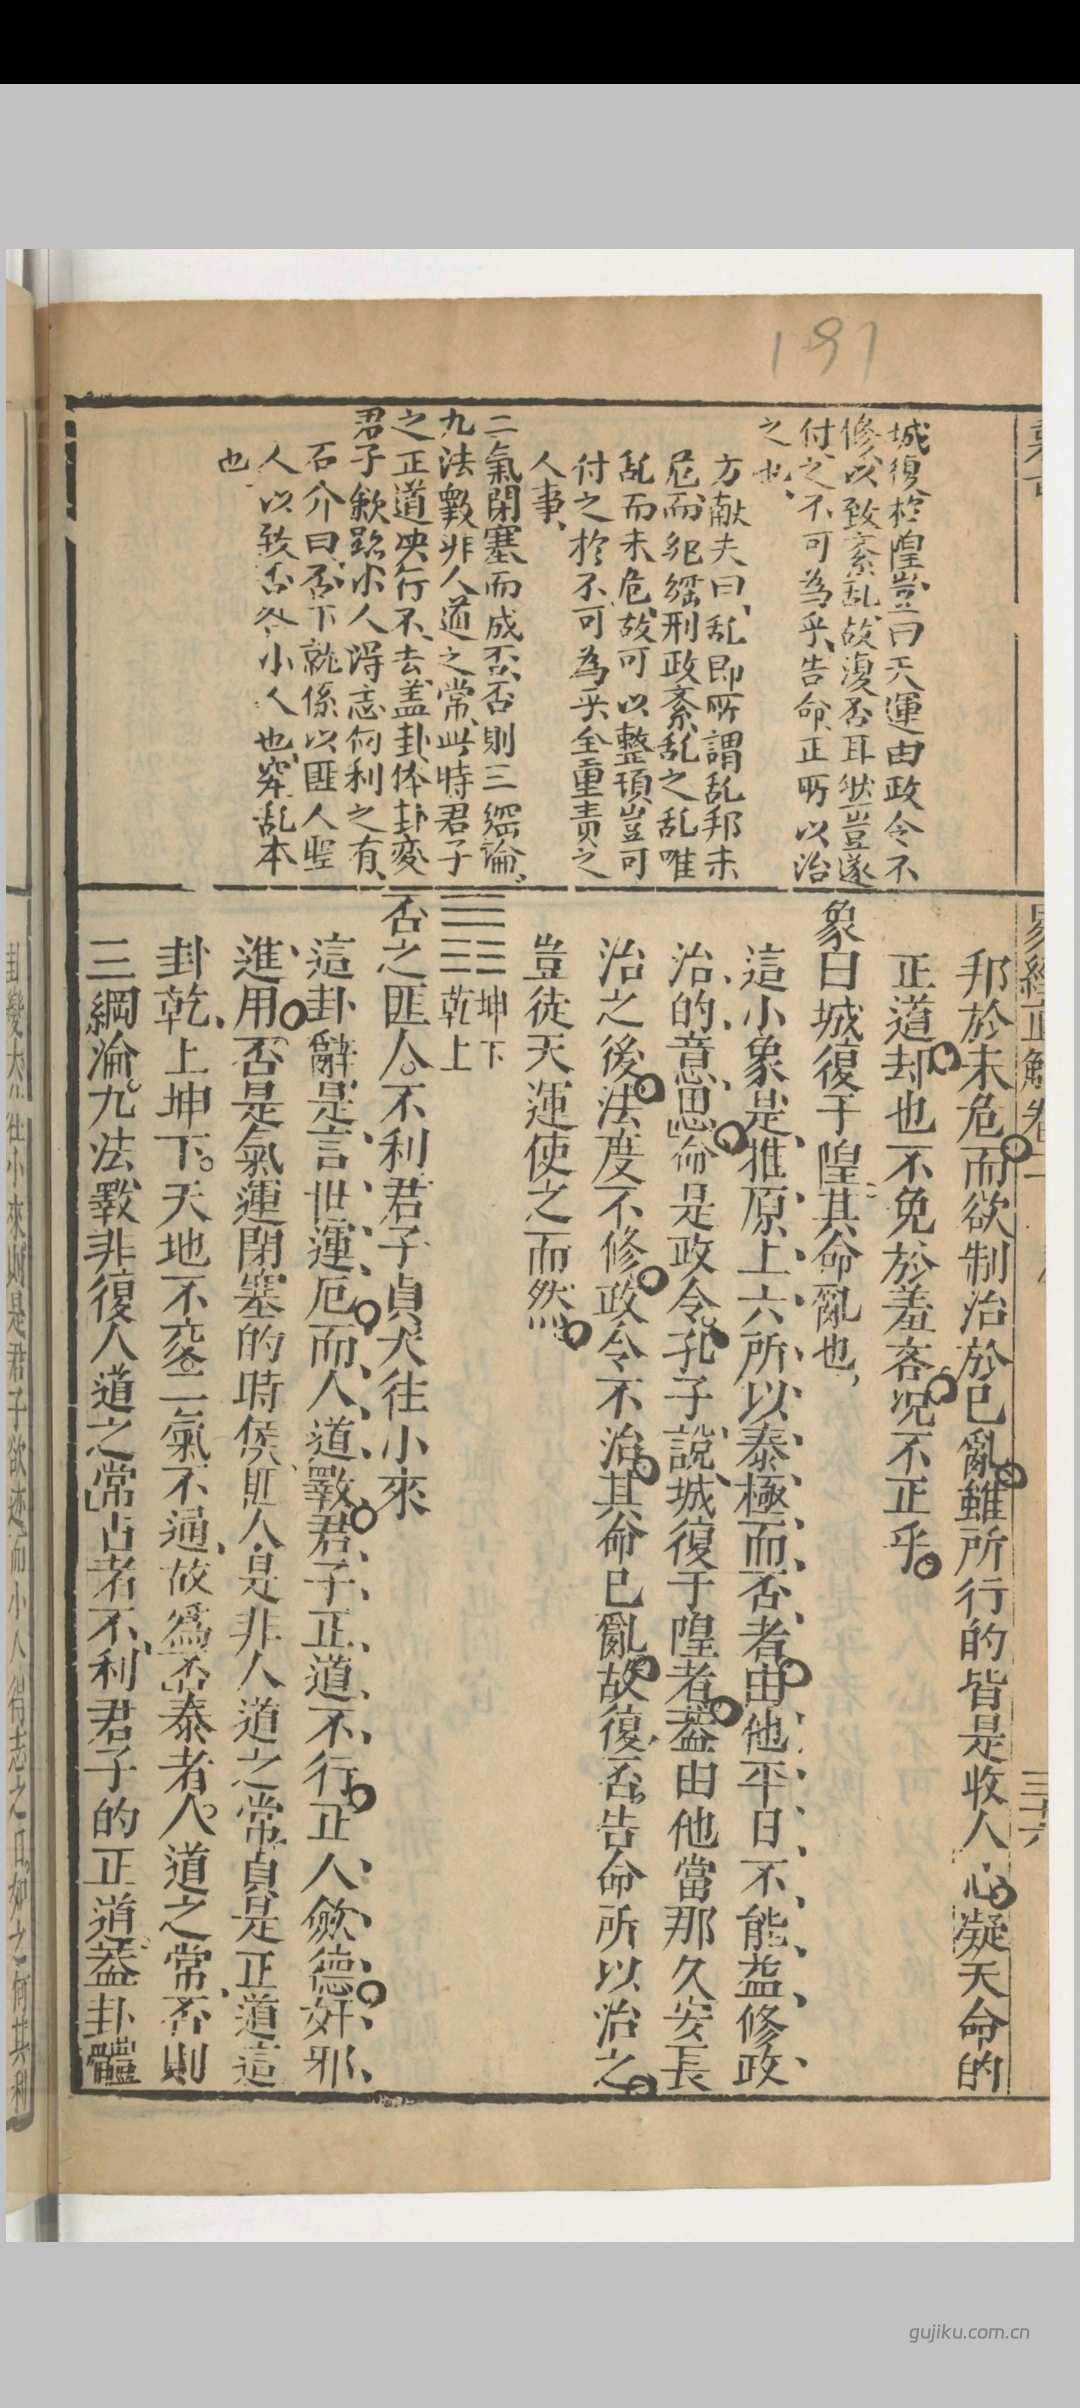 197
城復於隍豈曰天運由政令不
修以致紊乱故復否耳然豈遂
付之不可為乎告命正所以治
之也
方献夫曰乱即所謂乱邦未
危而綱刑政紊乱之乱唯
乱而未危故可以整頓豈可
付之於不可為乎全重責之
人事
二氣閉塞而成否否則三綱淪
九法斁非人道之常此時君子
之正道决行不去盖卦体卦変
君子歛跡小人得志何利之有
石介曰否下就係以匪人聖
人以致否咎小人也究乱本
也
易經正解卷二
三十六
邦於未危而欲制治於已亂雖所行的皆是收人心凝天命的
正道却也不免於羞吝况不正乎
象曰城復于隍其命亂也
這小象是推原上六所以泰極而否者由他平日不能益修政
治的意思命是政令孔子說城復于隍者葢由他當那久安長
治之後法度不修政令不治其命已亂故復否告命所以治之
豈徒天運使之而然
坤下
乾上
否之匪人不利君子貞大往小來
這卦辭是言世運厄而人道斁君子正道不行正人斂德奸邪
進用否是氣運閉塞的時侯匪人是非人道之常貞是正道這
卦乾上坤下天地不交二氣不通故爲否泰者人道之常否則
三綱淪九法斁非復人道之常占者不利君子的正道葢卦體
卦變大往小來則是君子欲迹而小人得志之日如之何其利
gujiku.com.cn